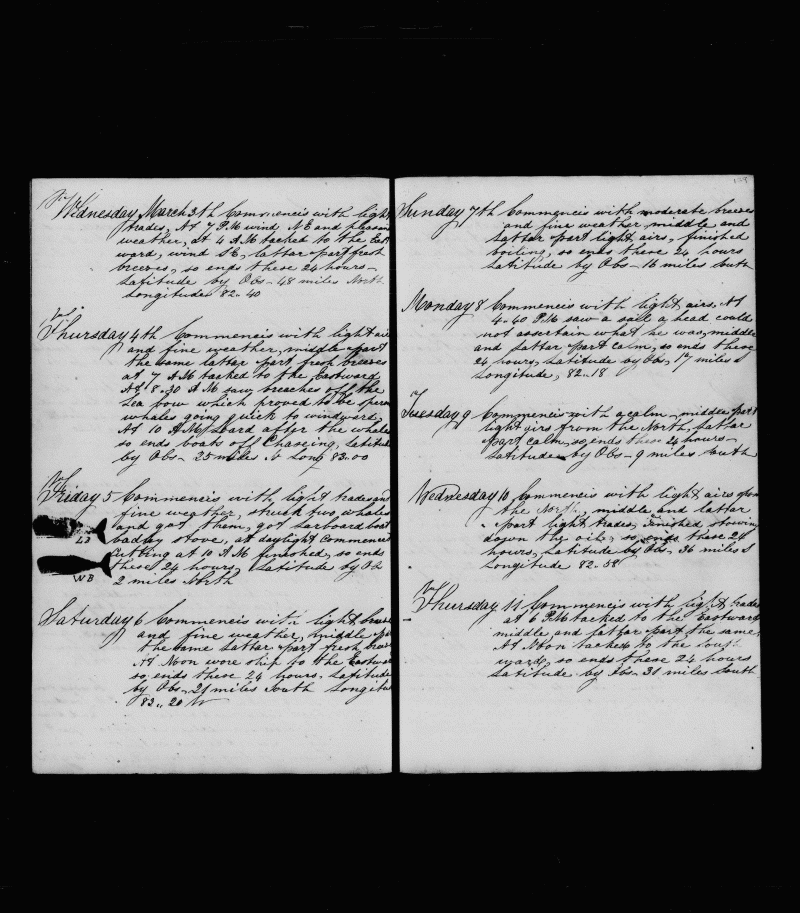 Wednesday March 3th Commencis with light
trades, At 7 P.M wind NE and pleasan
weather, at 4 A M tacked to the East
ward, wind SE, latter part fresh
breezes, so ends these 24 hours—
Latitude by Obs— 48 miles North
Longitudes 82..40
Thursday 4th Commencis with light air
and fine weather, middle part
the same latter part fresh breezes
at 7 A.M tacked to the Eastward
At 8-30 A M saw breaches off the
Lea bow which proved to be sperm
whales going quick to windward,
At 10 A M Loard after the whales
so ends boats off Chaseing, Latitude
by Obs— 25 miles N Long 83..00
Friday 5 Commencis with light trades and
fine weather, struck two whales
and got them, got Larboard boat
badley stove, at daylight Commenced
Cutting at 10 A M finished, so ends
these 24 hours, Latitude by Ob
2 miles North
LB
WB
Saturday 6 Commencis with light breez
and fine weather, middle pa
the same Latter part fresh breez
At Noon wore ship to the Eastwar
so ends these 24 hours. Latitude
by Obs— 21 miles South Longitu
83.. 20 W
139
Sunday 7th Commencis with moderate breezes
and fine weather middle and
Latter part light airs, finished
boiling, so ends these 24 hours
Latitude by Obs— 16 miles South
Monday 8 Commencis with light airs, At
4..40 P.M saw a sail a head could
not ascertain what he was, middle
and Latter part calm, so ends these
24 hours, Latitude by Obs, 17 miles S
Longitude, 82..18
Tuesday 9 Commencis with a calm— middle part
light airs from the North, Latter
part calm, so ends these 24 hours—
Latitude by Obs— 9 miles South
Wednesday 10 Commencis with light airs from
the North, middle and Lattar
part light trades, Finished stowing
down the oil, so ends these 24
hours, Latitude by Obs— 36 miles S
Longitude 82..58
Thursday 11 Commencis with light trades
at 6 P.M tacked to the Eastward
middle and Lattar part the same
At Noon tacked to the South
ward, so ends these 24 hours
Latitude by Obs— 31 miles South